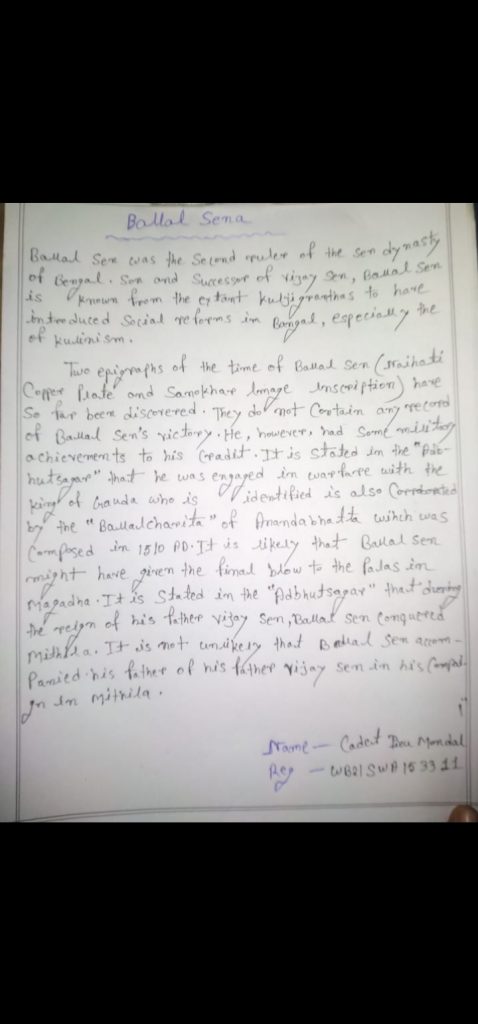 Ballal Sena
Ballal Sen was the Second ruler of the Sen dynasty
of Bengal. Son and Successor of vijay Sen, Ballal Sen
is known from the extant kuljigranthas to have
introduced Social reforms in Bangal, especially the
of kulinism.
Two epigraphs of the time of Ballal Sen (Naihati
Copper Plate and Sanokhar Image Inscription) have
So far been discovered. They do not Contain any record
of Ballal Sen's victory. He, however, had Some military
achievements to his Creadit. It is Stated in the "Adb-
hutsagar" that he was engaged in warfare with the
king of Gauda who is identified is also Corroborated
by the "Ballalcharita" of Anandabhatta wihch was
Composed in 1510 AD. It is likely that Ballal Sen
might have given the final blow to the Palas in
Magadha. It is Stated in the "Adbhutsagar" that during
the reign of his father vijay Sen, Ballal Sen Conquered
Mithila. It is not unlikely that Ballal Sen accom-
Panied his father of his father vijay Sen in his
gn In Mithila.
Name - Cadet Mondal
Reg - WB21SWA153311